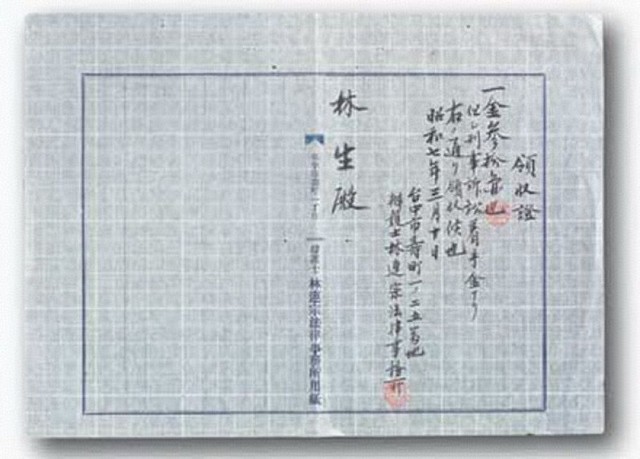 領收證
一金參拾圓也
但シ刑事訴訟着手金ナリ
右ノ通リ領收候也
昭和七年三月十日
台中市壽町一ノ二五番地
辯護士林連宗法律事務所
林生殿
辯護士 林連宗法律事務所用紙